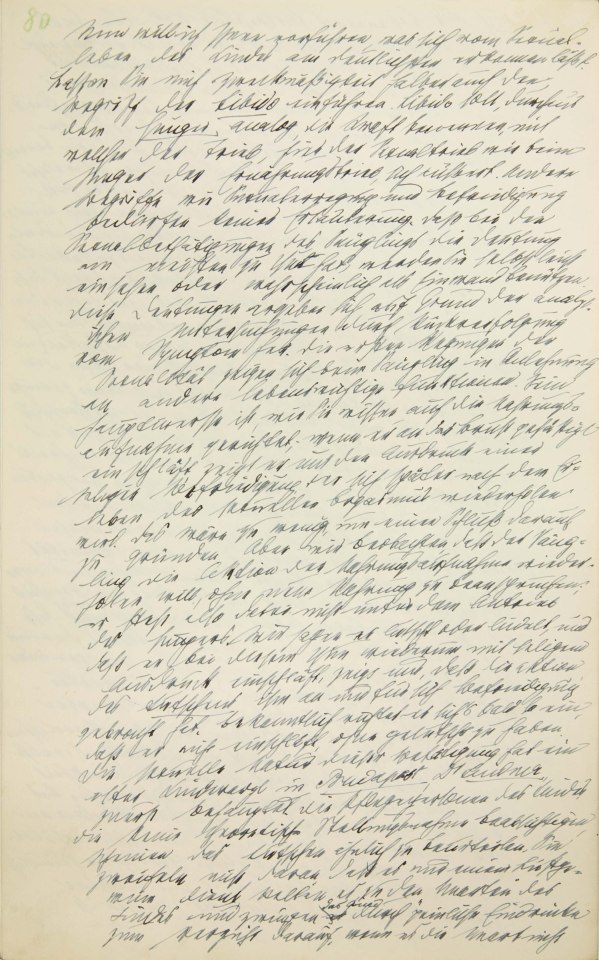 80
Nun will ich Ihnen vorführen, was sich vom Sexual-
leben des Kindes am deutlichsten erkennen läßt.
Lassen Sie mich Zweckmäßigkeit halber auch den
Begriff der Libido einführen. Libido soll, durchaus
dem Hunger analog die Kraft benennen, mit
welcher der Trieb, hier der Sexualtrieb wie beim
Hunger der Ernährungstrieb sich äußert. Andere
Begriffe wie Sexualerregung und Befriedigung
bedürfen keiner Erläuterung. Daß bei den
Sexualbetätigungen des Säuglings die Deutung
am meisten zu thun hat, werden Sie selbst leicht
einsehen oder wahrscheinlich als Einwand benützen.
Diese Deutungen ergeben sich auf Grund der analyt-
ischen Untersuchungen durch Rückverfolgung
vom Symptom her. Die ersten Regungen der
Sexualität zeigen sich beim Säugling in Anlehnung
an andere lebenswichtige Funktionen. Sein
Hauptinteresse ist, wie Sie wissen auf die Nahrungs-
aufnahme gerichtet. Wenn er an der Brust gesättigt
einschläft zeigt er uns den Ausdruck einer
seligen Befriedigung der sich später nach dem Er-
leben des sexuellen Orgasmus wiederholen
wird. Das wäre zu wenig um einen Schluß darauf
zu gründen. Aber wir beobachten daß der Säug-
ling die Aktion der Nahrungsaufnahme wieder-
holen will, ohne neue Nahrung zu beanspruchen;
er steht also dabei nicht unter dem Antrieb
des Hungers. Wir sagen er lutscht oder ludelt, und
daß er bei diesem Thun wiederum mit seligem
Ausdruck einschläft, zeigt uns, daß die Aktion
des Lutschens ihm an und für sich Befriedigung
gebracht hat. Bekanntlich richtet er sich's bald so ein,
daß er nicht einschläft, ohne gelutscht zu haben.
Die sexuelle Natur dieser Betätigung hat ein
alter Kinderarzt in Budapest, Dr Lindner,
zuerst behauptet. Die Pflegepersonen des Kindes
die keine theoretische Stellungnahme beabsichtigen,
scheinen das Lutschen ähnlich zu beurteilen. Sie
zweifeln nicht daran daß es nur einem Lustge-
winn dient, stellen es zu den Unarten des
Kindes und zwingen das Kind durch peinliche Eindrücke
zum Verzicht darauf, wenn es die Unart nicht